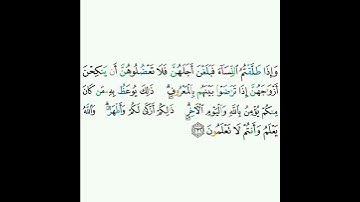 وَإِذَا طَلَّقْتُمُ ٱلنِّسَآءَ فَبَلَغْنَ أَجَلَهُنَّ فَلَا تَعْضُلُوهُنَّ أَن يَنكِحْنَ
أَزْوَٰجَهُنَّ إِذَا تَرَٰضَوْا۟ بَيْنَهُم بِٱلْمَعْرُوفِ ۗ ذَٰلِكَ يُوعَظُ بِهِۦ مَن كَانَ
مِنكُمْ يُؤْمِنُ بِٱللَّهِ وَٱلْيَوْمِ ٱلْءَاخِرِ ۗ ذَٰلِكُمْ أَزْكَىٰ لَكُمْ وَأَطْهَرُ ۗ وَٱللَّهُ
يَعْلَمُ وَأَنتُمْ لَا تَعْلَمُونَ ۝٢٣٢